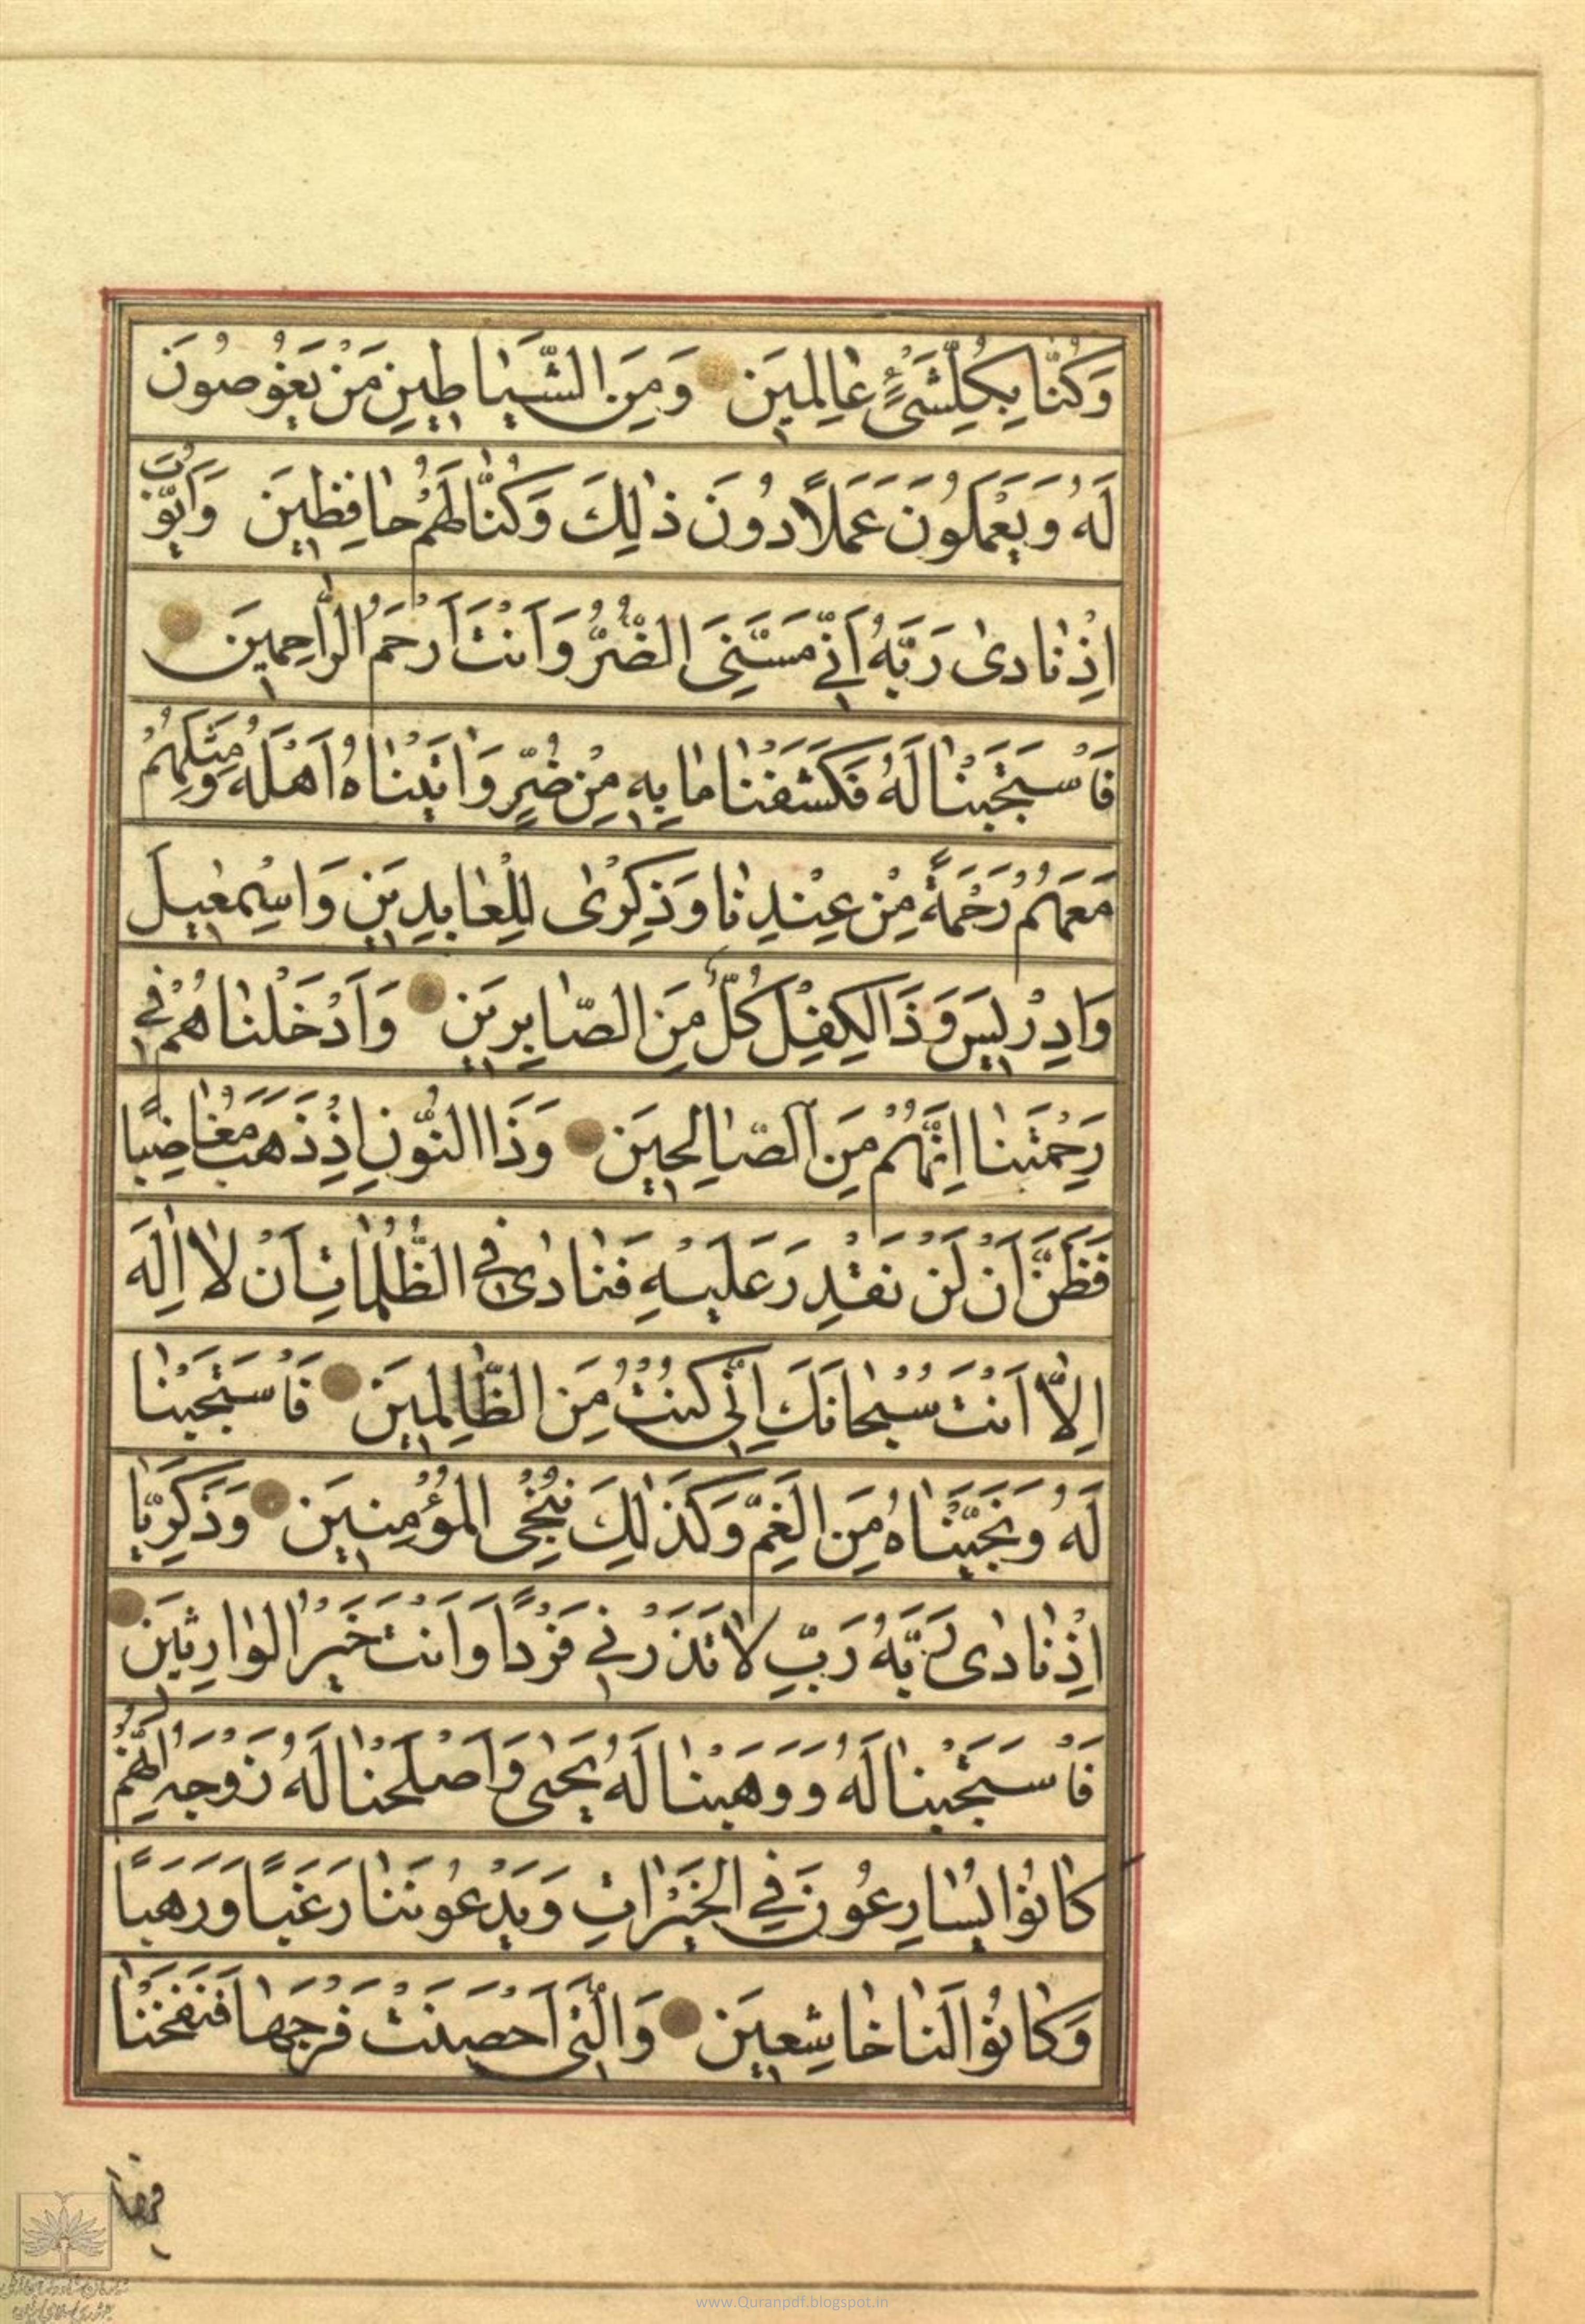 وَكُنَّا بِكُلِّ شَیْءٍ عَالِمِينَ وَمِنَ الشَّيَاطِينِ مَنْ يَغُوصُونَ
لَهُ وَيَعْمَلُونَ عَمَلًا دُونَ ذٰلِكَ وَكُنَّا لَهُمْ حَافِظِينَ وَاَيُّوبَ
اِذْ نَادٰى رَبَّهُ اَنِّي مَسَّنِيَ الضُّرُّ وَاَنْتَ اَرْحَمُ الرَّاحِمِينَ
فَاسْتَجَبْنَا لَهُ فَكَشَفْنَا مَا بِهِ مِنْ ضُرٍّ وَاٰتَيْنَاهُ اَهْلَهُ وَمِثْلَهُمْ
مَعَهُمْ رَحْمَةً مِنْ عِنْدِنَا وَذِكْرٰى لِلْعَابِدِينَ وَاِسْمٰعِيلَ
وَاِدْرِيسَ وَذَا الْكِفْلِ كُلٌّ مِنَ الصَّابِرِينَ وَاَدْخَلْنَاهُمْ فِي
رَحْمَتِنَا اِنَّهُمْ مِنَ الصَّالِحِينَ وَذَا النُّونِ اِذْ ذَهَبَ مُغَاضِبًا
فَظَنَّ اَنْ لَنْ نَقْدِرَ عَلَيْهِ فَنَادٰى فِي الظُّلُمَاتِ اَنْ لَا اِلٰهَ
اِلَّا اَنْتَ سُبْحَانَكَ اِنِّي كُنْتُ مِنَ الظَّالِمِينَ فَاسْتَجَبْنَا
لَهُ وَنَجَّيْنَاهُ مِنَ الْغَمِّ وَكَذٰلِكَ نُنْجِي الْمُؤْمِنِينَ وَزَكَرِيَّا
اِذْ نَادٰى رَبَّهُ رَبِّ لَا تَذَرْنِي فَرْدًا وَاَنْتَ خَيْرُ الْوَارِثِينَ
فَاسْتَجَبْنَا لَهُ وَوَهَبْنَا لَهُ يَحْيٰى وَاَصْلَحْنَا لَهُ زَوْجَهُ اِنَّهُمْ
كَانُوا يُسَارِعُونَ فِي الْخَيْرَاتِ وَيَدْعُونَنَا رَغَبًا وَرَهَبًا
وَكَانُوا لَنَا خَاشِعِينَ وَالَّتِي اَحْصَنَتْ فَرْجَهَا فَنَفَخْنَا
فيها
www.Quranpdf.blogspot.in